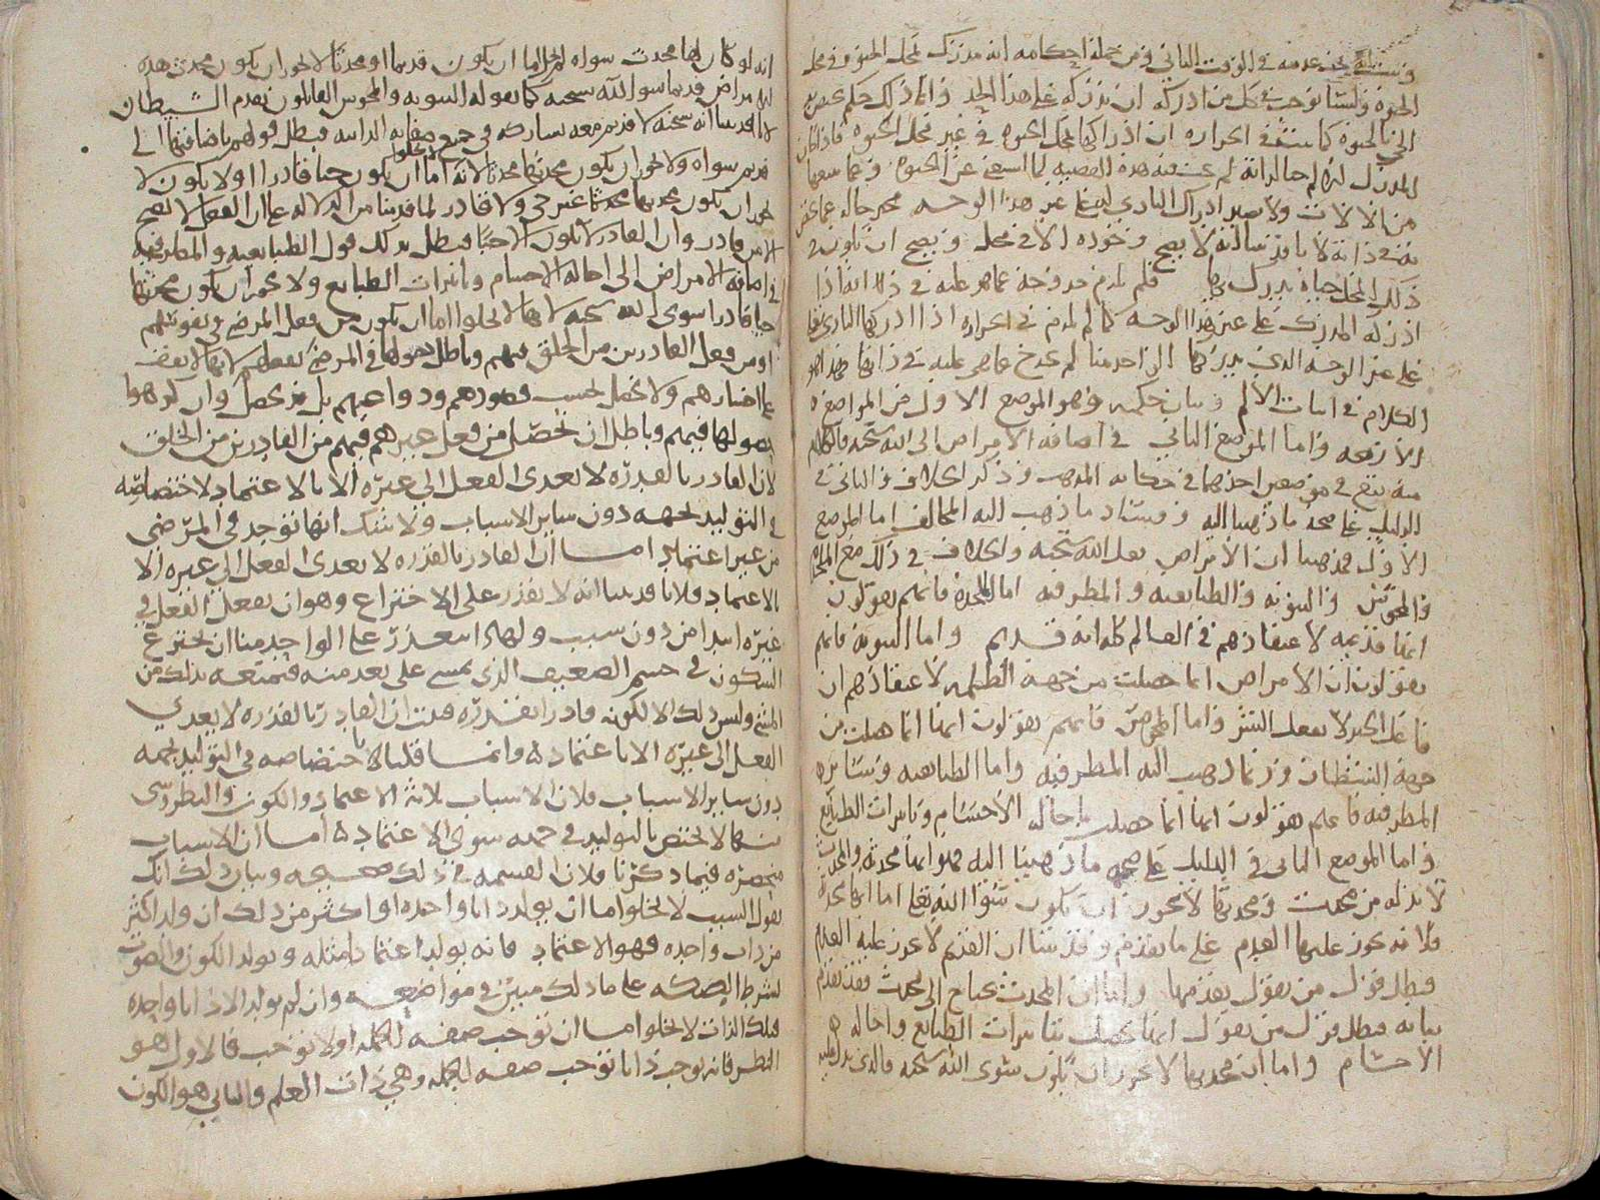 الحيوة وليسا نوجب في كل من ادركه ان ندركه على هذا الحد وانما ذلك حكم يختص به
الحي بالحيوة كما يثبت في الحرارة ان ادراكها بمحل الحيوة في غير محل الحيوة فاذا كان
المدرك لها
من الالات ولا يصير ادراك الباري لها على غير هذا الوجه
ذلك المحل حياة يدرك بها فلم يلزم خروجه عما هو عليه في ذلك انه اذا
ادركه المدرك على غير هذا الوجه كما لم يلزم في الحرارة اذا ادركها الباري تعالى
على غير الوجه الذي يدركها الواحد منا لم تخرج عما هي عليه في ذاتها فهذا هو
الكلام في اثبات الالم وبيان حكمه وهو الموضع الاول من المواضع
الاربعه واما الموضع الثاني في اضافه الامراض الى الله سبحانه فالكلام
منه يقع في موضعين احدهما في حكاية المذهب وذكر الخلاف والثاني في
الدليل على صحه ما ذهبنا اليه وفساد ما ذهب اليه المخالف اما الموضع
الاول فمذهبنا ان الامراض فعل الله سبحنه والخلاف في ذلك مع الملحده
والمجوس والثنويه والطبايعيه والمطرفيه اما الملحدة فانهم يقولون
انها قديمه لاعتقادهم في العالم كله انه قديم واما الثنويه فانهم
يقولون ان الامراض انما حصلت من جهة الظلمه لاعتقادهم ان
فاعل الخير لا يفعل الشر واما المجوس فانهم يقولون انها انما حصلت من
جهة الشيطان وربما ذهب اليه المطرفيه واما الطبايعيه وسائر
المطرفيه فانهم يقولون انها انما حصلت باحاله الاجسام وتاثيرات الطبايع
واما الموضع الثاني في الدليل على صحه ما ذهبنا اليه فهو انها محدثه والمحدث
لا بد له من محدث ومحدثها لا يجوز ان يكون سوى الله تعالى اما انها محدثه
فلانه يجوز عليها العدم على ما تقدم وقد بينا ان القديم لا يجوز عليه العدم
فبطل قول من يقول بقدمها واما ان المحدث يحتاج الى محدث فقد تقدم
بيانه فبطل قول من يقول انها حصلت بتاثيرات الطبايع واحاله
الاجسام واما ان محدثها لا يجوز ان يكون سوى الله سبحنه فالذي يدل عليه
انه لو كان لها محدث سواه لم يخل اما ان يكون قديما او محدثا لا يجوز ان يكون محدث هذه
الامراض قديما سوا الله سبحنه كما يقوله الثنويه والمجوس القايلون بقدم الشيطان
لانا قد بينا انه سبحنه لا قديم معه يشاركه في جميع صفاته الذاتيه فبطل قولهم باضافتها الى
قديم سواه ولا يجوز ان يكون محدثها محدثا لانه لا يخلوا اما ان يكون حيا قادرا او لا يكون لا
يجوز ان يكون محدثها محدثا غير حي ولا قادر لما قدمنا من الدلاله على ان الفعل لا يصح
الا من قادر وان القادر لا يكون الا حيا فبطل بذلك قول الطبايعيه والمطرفيه
في اضافة الامراض الى احاله الاجسام وتاثيرات الطبايع ولا يجوز ان يكون محدثها
حيا قادرا سوى الله سبحنه لانها لا تخلوا اما ان تكون من فعل المرضى في نفوسهم
او من فعل القادرين من الخلق فيهم وباطل حصولها في المرضى بفعلهم لانها لا تقف
على اختيارهم ولا تحصل بحسب قصودهم ودواعيهم بل قد تحصل وان كرهوا
حصولها فيهم وباطل ان تحصل من فعل غيرهم فيهم من القادرين من الخلق
لان القادر بالقدره لا يعدي الفعل الى غيره الا بالاعتماد لاختصاصه
في التوليد بجهه دون ساير الاسباب ولا شك انها توجد في المرضى
من غير اعتماد اما ان القادر بالقدره لا يعدي الفعل الى غيره الا
بالاعتماد فلانا قد بينا انه لا يقدر على الاختراع وهو ان يفعل الفعل في
غيره ابتدا من دون سبب ولهذا يتعذر على الواحد منا ان يخترع
السكون في جسم الضعيف الذي يمشي على بعد منه فيمنعه بذلك من
المشي وليس ذلك الا لكونه قادرا بقدره فثبت ان القادر بالقدره لا يعدي
الفعل الى غيره الا باعتماد وانما قلنا باختصاصه في التوليد بجهه
دون ساير الاسباب فلان الاسباب ثلاثه الاعتماد والكون والنظر وشي
منها لا يختص بالتوليد في جهه سوى الاعتماد اما ان الاسباب
منحصره فيما ذكرنا فلان القسمه في ذلك صحيحه وبيان ذلك انك
تقول السبب لا يخلوا اما ان يولد ذاتا واحده او اكثر من ذلك ان ولد اكثر
من ذات واحده فهو الاعتماد فانه يولد اعتمادا مثله ويولد الكون والصوت
بشرط الصكه على ما ذلك مبين في مواضعه وان لم يولد الا ذاتا واحده
فتلك الذات لا تخلوا اما ان توجب صفه للجمله او لا توجب فالاول هو
النظر فانه يوجب ذاتا توجب صفه للجمله وهي ذات العلم والثاني هو الكون